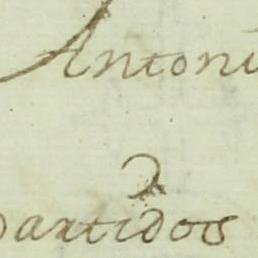 Antoni
partidos